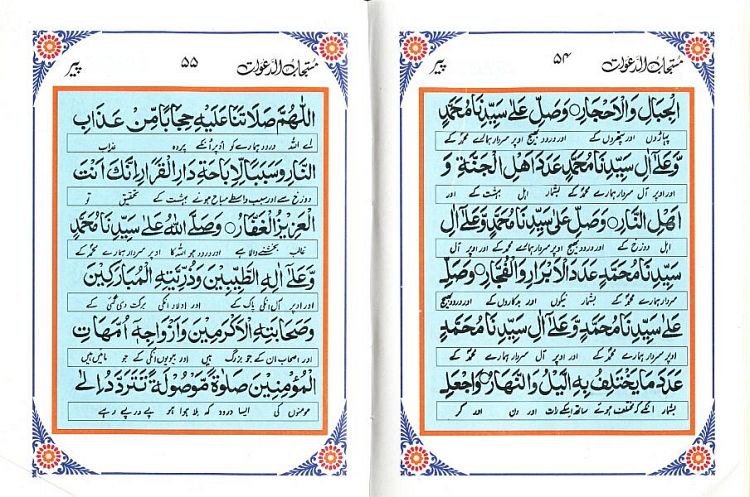 مستجاب الدعوات ۵۴ پیر
الْجِبَالِ وَالْاَحْجَارِ وَصَلِّ عَلٰى سَيِّدِنَا مُحَمَّدٍ
پہاڑوں اور پتھروں کے اور درود بھیج اوپر سردار ہمارے محمدؐ کے
وَّعَلٰٓى اٰلِ سَيِّدِنَا مُحَمَّدٍ عَدَدَ اَهْلِ الْجَنَّةِ وَ
اور اوپر آل سردار ہمارے محمدؐ کے بشمار اہل بہشت کے اور
اَهْلِ النَّارِ وَصَلِّ عَلٰى سَيِّدِنَا مُحَمَّدٍ وَّعَلٰٓى اٰلِ
اہل دوزخ کے اور درود بھیج اوپر سردار ہمارے محمدؐ کے اور اوپر آل
سَيِّدِنَا مُحَمَّدٍ عَدَدَ الْاَبْرَارِ وَالْفُجَّارِ وَصَلِّ
سردار ہمارے محمدؐ کے بشمار نیکوں اور بدکاروں کے اور درود بھیج
عَلٰى سَيِّدِنَا مُحَمَّدٍ وَّعَلٰٓى اٰلِ سَيِّدِنَا مُحَمَّدٍ
اوپر سردار ہمارے محمدؐ کے اور اوپر آل سردار ہمارے محمدؐ کے
عَدَدَ مَا يَخْتَلِفُ بِهِ الَّيْلُ وَالنَّهَارُ وَاجْعَلِ
بشمار اسکے کہ مختلف ہوتے ساتھ اسکے رات اور دن اور کر
مستجاب الدعوات ۵۵ پیر
اَللّٰهُمَّ صَلَاتَنَا عَلَيْهِ حِجَابًا مِّنْ عَذَابِ
اے اللہ درود ہمارے کو اوپر انکے پردہ عذاب
النَّارِ وَسَبَبًا لِّاِبَاحَةِ دَارِ الْقَرَارِ اِنَّكَ اَنْتَ
دوزخ سے اور سبب واسطے مباح ہونے بہشت کے تحقیق تو
الْعَزِيْزُ الْغَفَّارُ وَصَلَّى اللهُ عَلٰى سَيِّدِنَا مُحَمَّدٍ
غالب بخشنے والا ہے اور درود ہو اللہ کا اوپر سردار ہمارے محمدؐ کے
وَّعَلٰٓى اٰلِهِ الطَّيِّبِيْنَ وَذُرِّيَّتِهِ الْمُبَارَكِيْنَ
اور اوپر آل انکی پاک کے اور اولاد انکی برکت دی گئی کے
وَصَحَابَتِهِ الْاَكْرَمِيْنَ وَاَزْوَاجِهٖ اُمَّهَاتِ
اور اصحاب ان کے جو بزرگ ہیں اور بیویوں انکی کے جو مائیں ہیں
الْمُؤْمِنِيْنَ صَلٰوةً مَّوْصُوْلَةً تَتَرَدَّدُ اِلٰى
مومنوں کی ایسا درود کہ ملا ہوا ہو پے در پے رہے